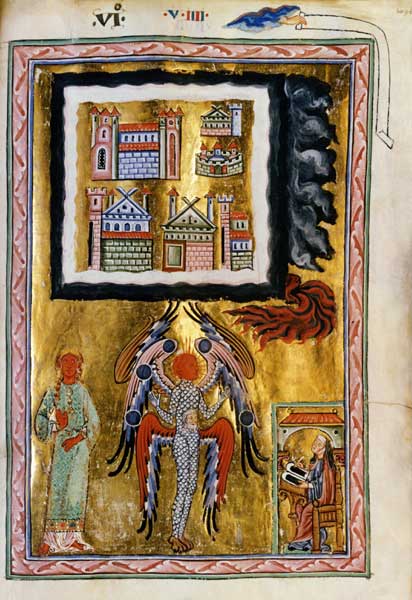 VIº
·V·IIII·